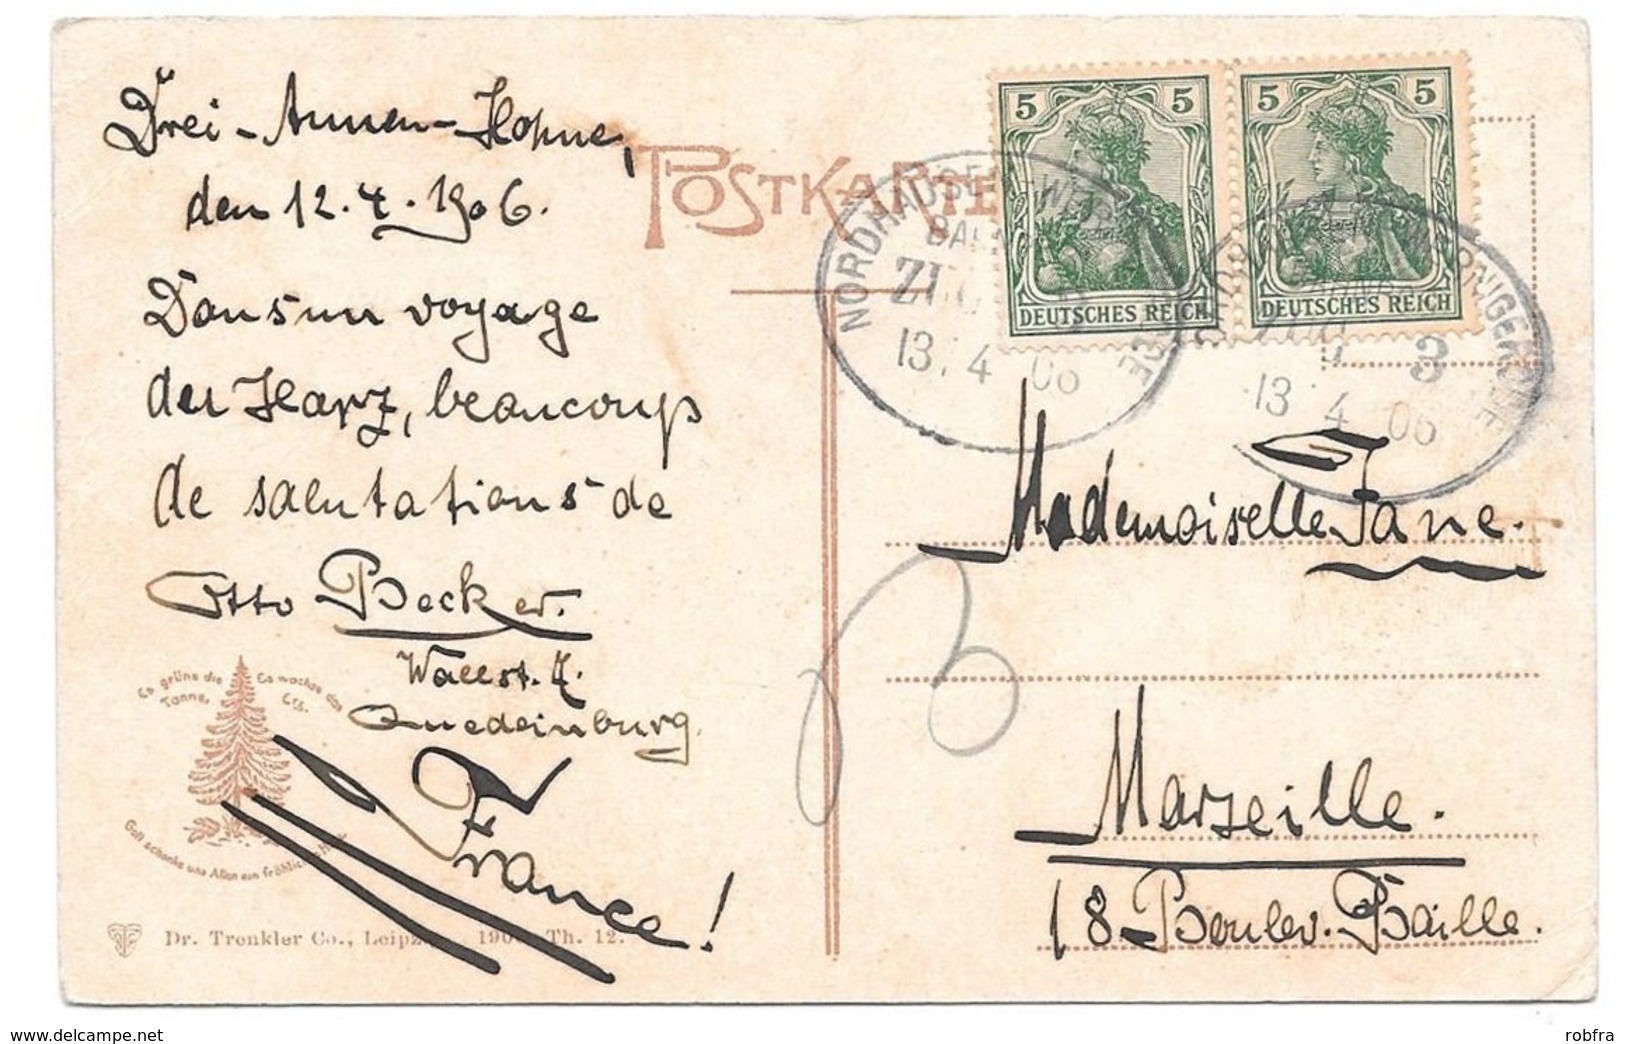 Drei-Annen-Hohne,
den 12.4.1906.
Dans un voyage
der Harz, beaucoup
de salutations de
Otto Becker.
Wallst.
Quedlinburg.
France!
Es grüne die Tanne,
Es wachse das Erz.
Gott schenke uns Allen ein fröhliches Herz
Dr. Trenkler Co., Leipzig 190 Th. 12.
POSTKARTE
5 5
DEUTSCHES REICH
5 5
DEUTSCHES REICH
NORDHAUSEN-WERNIGERODE
BAHN
ZUG
13.4 06
WERNIGERODE
ZUG 3
13 4 06
Mademoiselle Jane.
Marseille.
18-Boulev. Baille.
delcampe.net
robfra